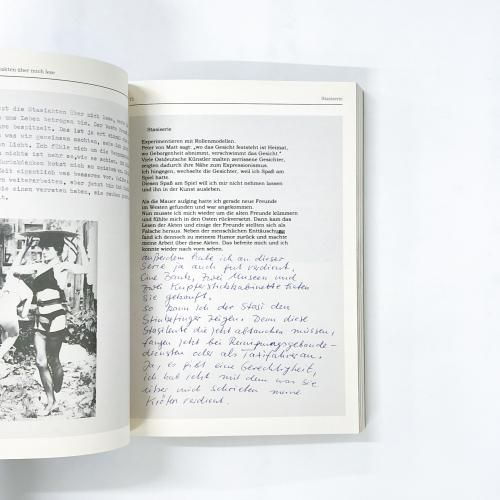 akten über mich lese
st die Stasiakten über mich lese,
uns Leben betrogen bin. Der beste
hre bespitzelt. Das ist ja
was wir gemeinsam machten,
Licht. Ich fühle mich um die
nichts ist mehr so, wie es schien.
Zurückdenken
Zeit eigentlich was besseres
weiterarbeiten, aber jetzt bin ich
die einen verraten haben,
71
Stasiserie
Stasiserie
Experimentieren mit Rollenmodellen.
Peter von Matt sagt: „wo das Gesicht feststeht ist Heimat,
wo Gebergenheit abnimmt, verschwimmt das Gesicht."
Viele Ostdeutsche Künstler malten zerrissene Gesichter,
zeigten dadurch ihre Nähe zum Expressionismus.
Ich hingegen, wechselte die Gesichter, weil ich Spaß am
Spiel hatte.
Diesen Spaß am Spiel will ich mir nicht nehmen lassen
und ihn in der Kunst ausleben.
Als die Mauer aufging hatte ich gerade neue Freunde
im Westen gefunden und war angekommen.
Nun musste ich mich wieder um die alten Freunde kümmern
und fühlte mich in den Osten rückversetzt. Dann kam das
Lesen der Akten und einige der Freunde stellten sich als
Falsche heraus. Neben der menschlichen Enttäuschung
fand ich dennoch zu meinem Humor zurück und machte
meine Arbeit über diese Akten. Das befreite mich und ich
konnte wieder nach vorn sehen.
außerdem habe ich an dieser
Serie ja auch gut verdient,
Eine Bank, zwei Museen und
zwei Kupferstichkabinette haben
sie gekauft.
So kann ich der Stasi den
Stinkefinger zeigen. Denn diese
Stasileute die jetzt abtauchen müssen,
fangen jetzt bei Reinigungsgebäude-
diensten oder als Taxifahrer an.
Ja, es gibt eine Gerechtigkeit,
ich hab jetzt mit dem was sie
über mich schrieben meine
Kröten verdient.